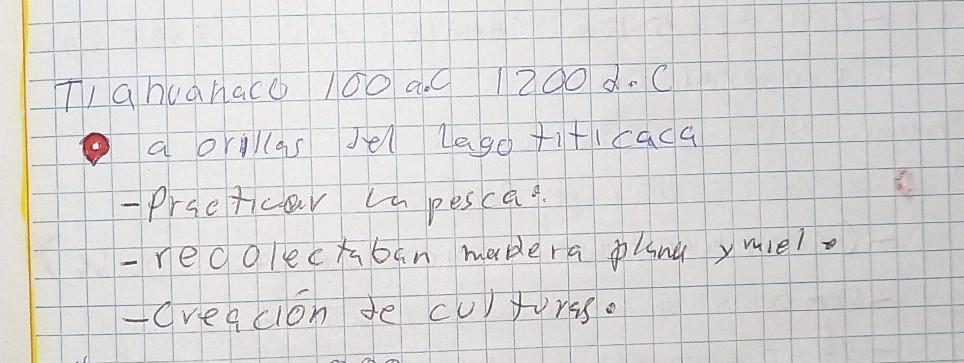 Tiahuanaco 100 a.C 1200 d.C
a orillas del lago titicaca
-Practicar la pesca.
-recolectaban madera pluna y miel.
-Creación de culturas.